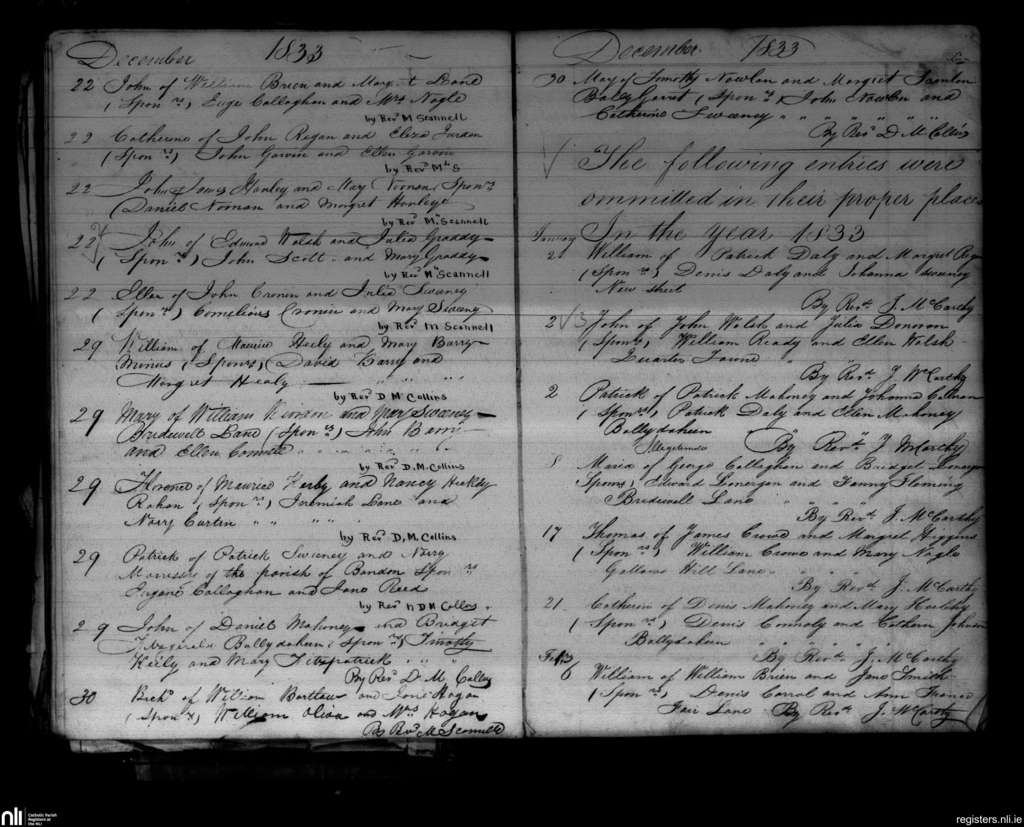 December 1833
22 John of William Brien and Marg't
(Spon rs) Euge Callaghan and Mrs Nagle
by Revd M Scannell
22 Catherine of John Regan and Eliza
(Spon rs) John Garvin and Ellen Garvin
by Revd M S
22 John of James Hanley and May Noonan (Spon rs
(Daniel Noonan and Margret Hanley
by Revd M. Scannell
22 John of Edmund Walsh and Julia Graddy
(Spon rs) John Scott and Mary Graddy
by Revd M Scannell
22 Ellen of John Cronin and Julia Swaney
(Spon rs) Cornelious Cronin and Mary Swaney
by Revd M Scannell
29 William of Maurice Heely and Mary Barry
(Spons) David Barry and
Margret Healy
by Revd D M Collins
29 Mary of William and Mary Swaney
Bridewell Lane (Spon rs) John Berry
and Ellen
by Revd D. M. Collins
29 Florence of Maurice and Nancy
(Spon rs) Jeremiah Lane and
Nory Curtin " " " "
by Revd D. M. Collins
29 Patrick of Patrick Sweeney and Nory
Morrissey of the parish of Bandon Spon rs
Eugane Callaghan and Jane Reed
by Revd D M
29 John of Daniel Mahoney and Bridget
Ballydaheen (Spon rs) Timothy
Keily and Mary Fitzpatrick " "
By Revd D. M.
30 Richd of William and Jane Hogan
(Spon rs) William Oliva and Mrs Hogan
By Revd M Scannell
December 1833
30 May of Timothy Nowlan and Margret Scanlan
(Spon rs) John Nowlan and
Catherine Sweeney " " " " "
By Revd D. M. Collins
The following entries were
ommitted in their proper places
In the year 1833
January
2 William of Patrick Daly and Margret
(Spon rs) Denis Daly and Johanna Swaney
New Street
By Revd. J. McCarthy
2 John of John Walsh and Julia Donovan
(Spons) William Ready and Ellen Walsh
By Revd. J McCarthy
2 Patrick of Patrick Mahoney and Johanna
(Spon rs) Patrick Daly and Ellen Mahoney
Ballydaheen
By Revd J McCarthy
8 Maria of George Callaghan and Bridget Lonergan
Spons) Edward Lonergan and Fanny Fleming
Bridewell Lane
By Revd. J. McCarthy
17 Thomas of James Crowe and Margret Higgins
(Spon rs) William Crowe and Mary Nagle
Gallows Hill Lane
By Revd J. McCarthy
21 Catherin of Denis Mahoney and Mary
(Spon rs) Denis Connoly and Cathern Johnson
Ballydaheen " " "
By Revd. J. McCarthy
Feb.
6 William of William Brien and Jane Smith
(Spon rs) Denis Carrol and Ann
Fair Lane By Revd J. McCarthy
nli
Catholic Parish
Registers at
the NLI
registers.nli.ie